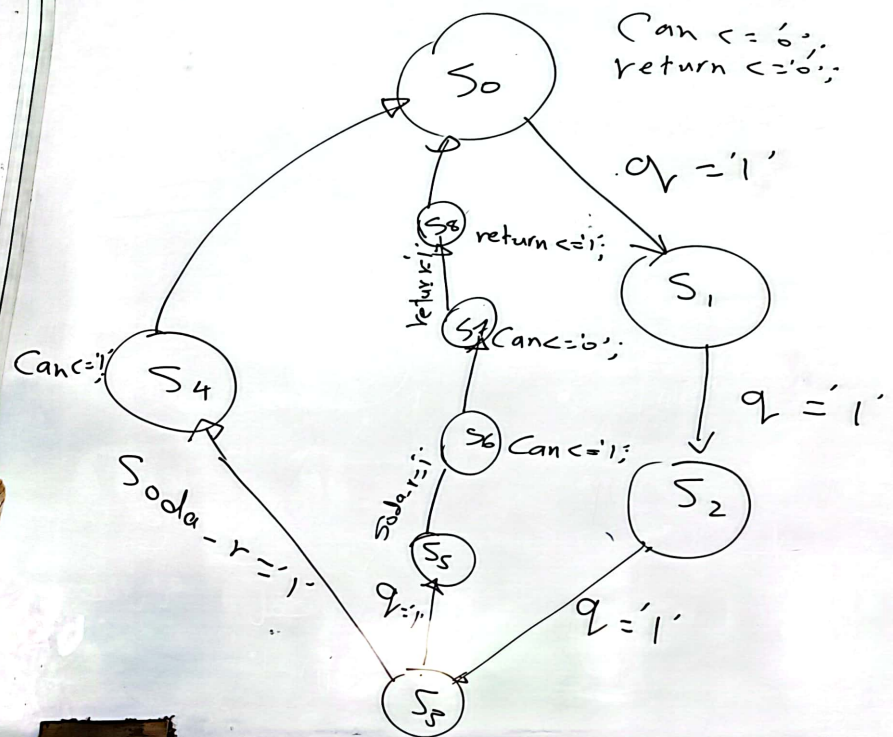 Can <= '0';
return <= '0';
S0
q = '1'
S8
return <= '1';
S1
S7
Can <= '0';
Can <= '1';
S4
q = '1'
S6
Can <= '1';
S2
Soda_r = '1'
Soda_r = '1'
S5
q = '1'
q = '1'
S3